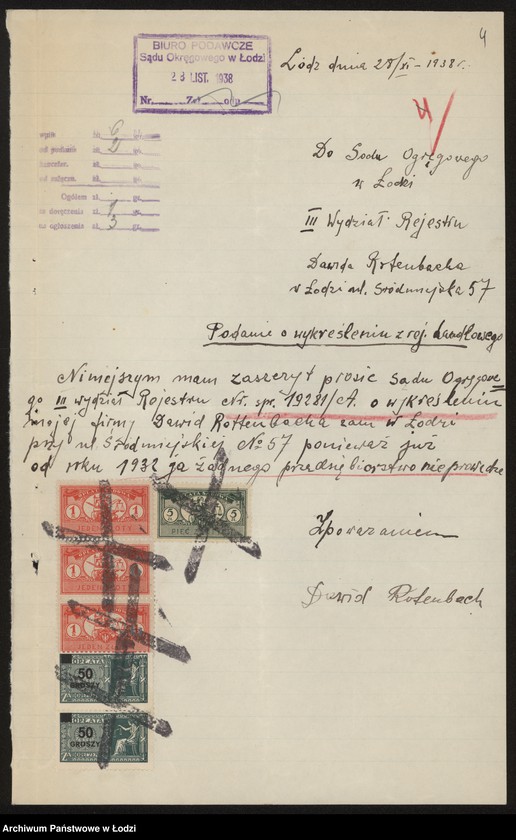 4
BIURO PODAWCZE
Sądu Okręgowego w Łodzi
23 LIST. 1938
Nr. Zał.
Łódź dnia 28/XI - 1938 r.
4
zł. 6 gr.
od podania zł. 2 gr.
zł. gr.
od załączn. zł. gr.
Ogółem zł. gr.
za doręczenie zł. 1 gr.
na ogłoszenie zł. 3 gr.
Do Sądu Ogręgowego
w Łodzi
III Wydział Rejestru
Dawida Rotenbacha
w Łodzi ul. Sródmiejska 57
Podanie o wykreśleniu z rej. handlowego
Niniejszym mam zaszczyt prosić Sądu Ogręgowe
go III wydział Rejestru Nr. spr. 19281/A o wykreślenin
mojej firmy Dawid Rottenbacha zam w Łodzi
przy ul Śródmiejskiej № 57 ponieważ już
od roku 1932 ja żadnego przedsiębiorstwo nie prowadzę
Z powazaniem
Dawid Rotenbach
1 1
JEDEN ZŁOTY
5 5
PIĘĆ
1 1
JEDEN ZŁOTY
1 1
JEDEN ZŁOTY
OPŁATA
50
GROSZY
OPŁATA
50
GROSZY
Archiwum Państwowe w Łodzi